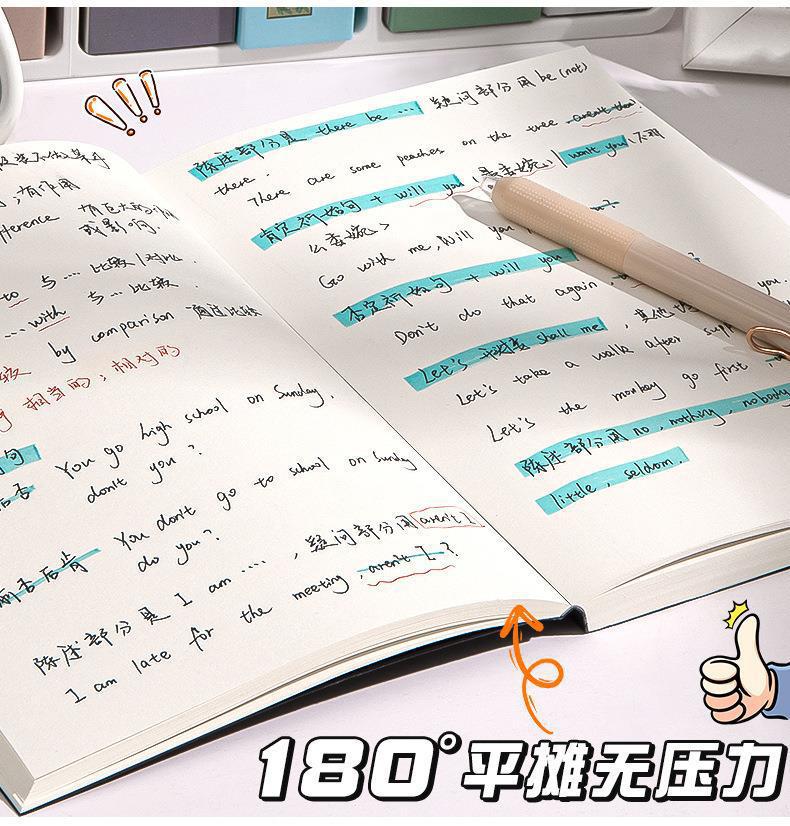 有作用
有巨大的
或影响
to 与....比较|对比
...with 与...比较.
by comparison 通过比较
相当的；相对的
You go high school on Sunday,
don't you?
You don't go to school on Sunday
前否后肯 do you?
陈述部分是 I am ...., 疑问部分用 aren't I
I am late for the meeting, aren't I?
陈述部分是 there be ... 疑问部分用 be (not)
there.
There are some peaches on the tree aren't there
肯定祈始句 + will you (最委婉) | won't you (不那
么委婉>
Go with me, Will you
否定祈始句 + will you
Don't do that again,
Let's 开头 shall me, 其他
you.
Let's take a walk after
Let's the monkey go first
陈述部分用 no, nothing, nobody
little, seldom.
180°平摊无压力